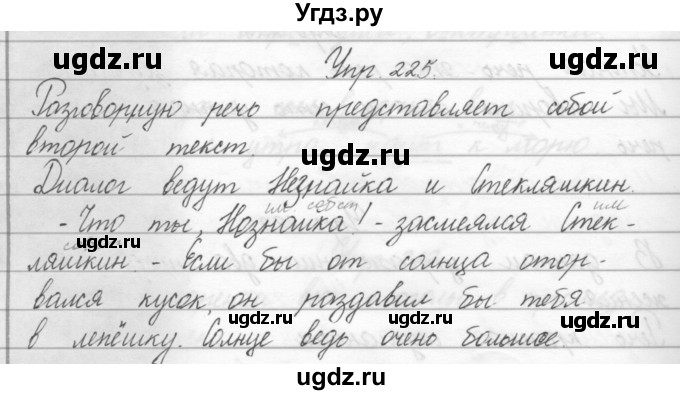 Угдз.ру
Упр. 225.
Разговорную речь представляет собой
второй текст.
Диалог ведут Незнайка и Стекляшкин.
- Что ты, Нознайка! - засмеялся Стек-
ляшкин. - Если бы от солнца отор-
вался кусок, он раздавил бы тебя
в лепёшку. Солнце ведь очень большое
ugdz.ru ugdz.ru
ugdz.ru
ugdz.ru ugdz.ru
ugdz.ru ugdz.ru
ugdz.ru ugdz.ru
ugdz.ru